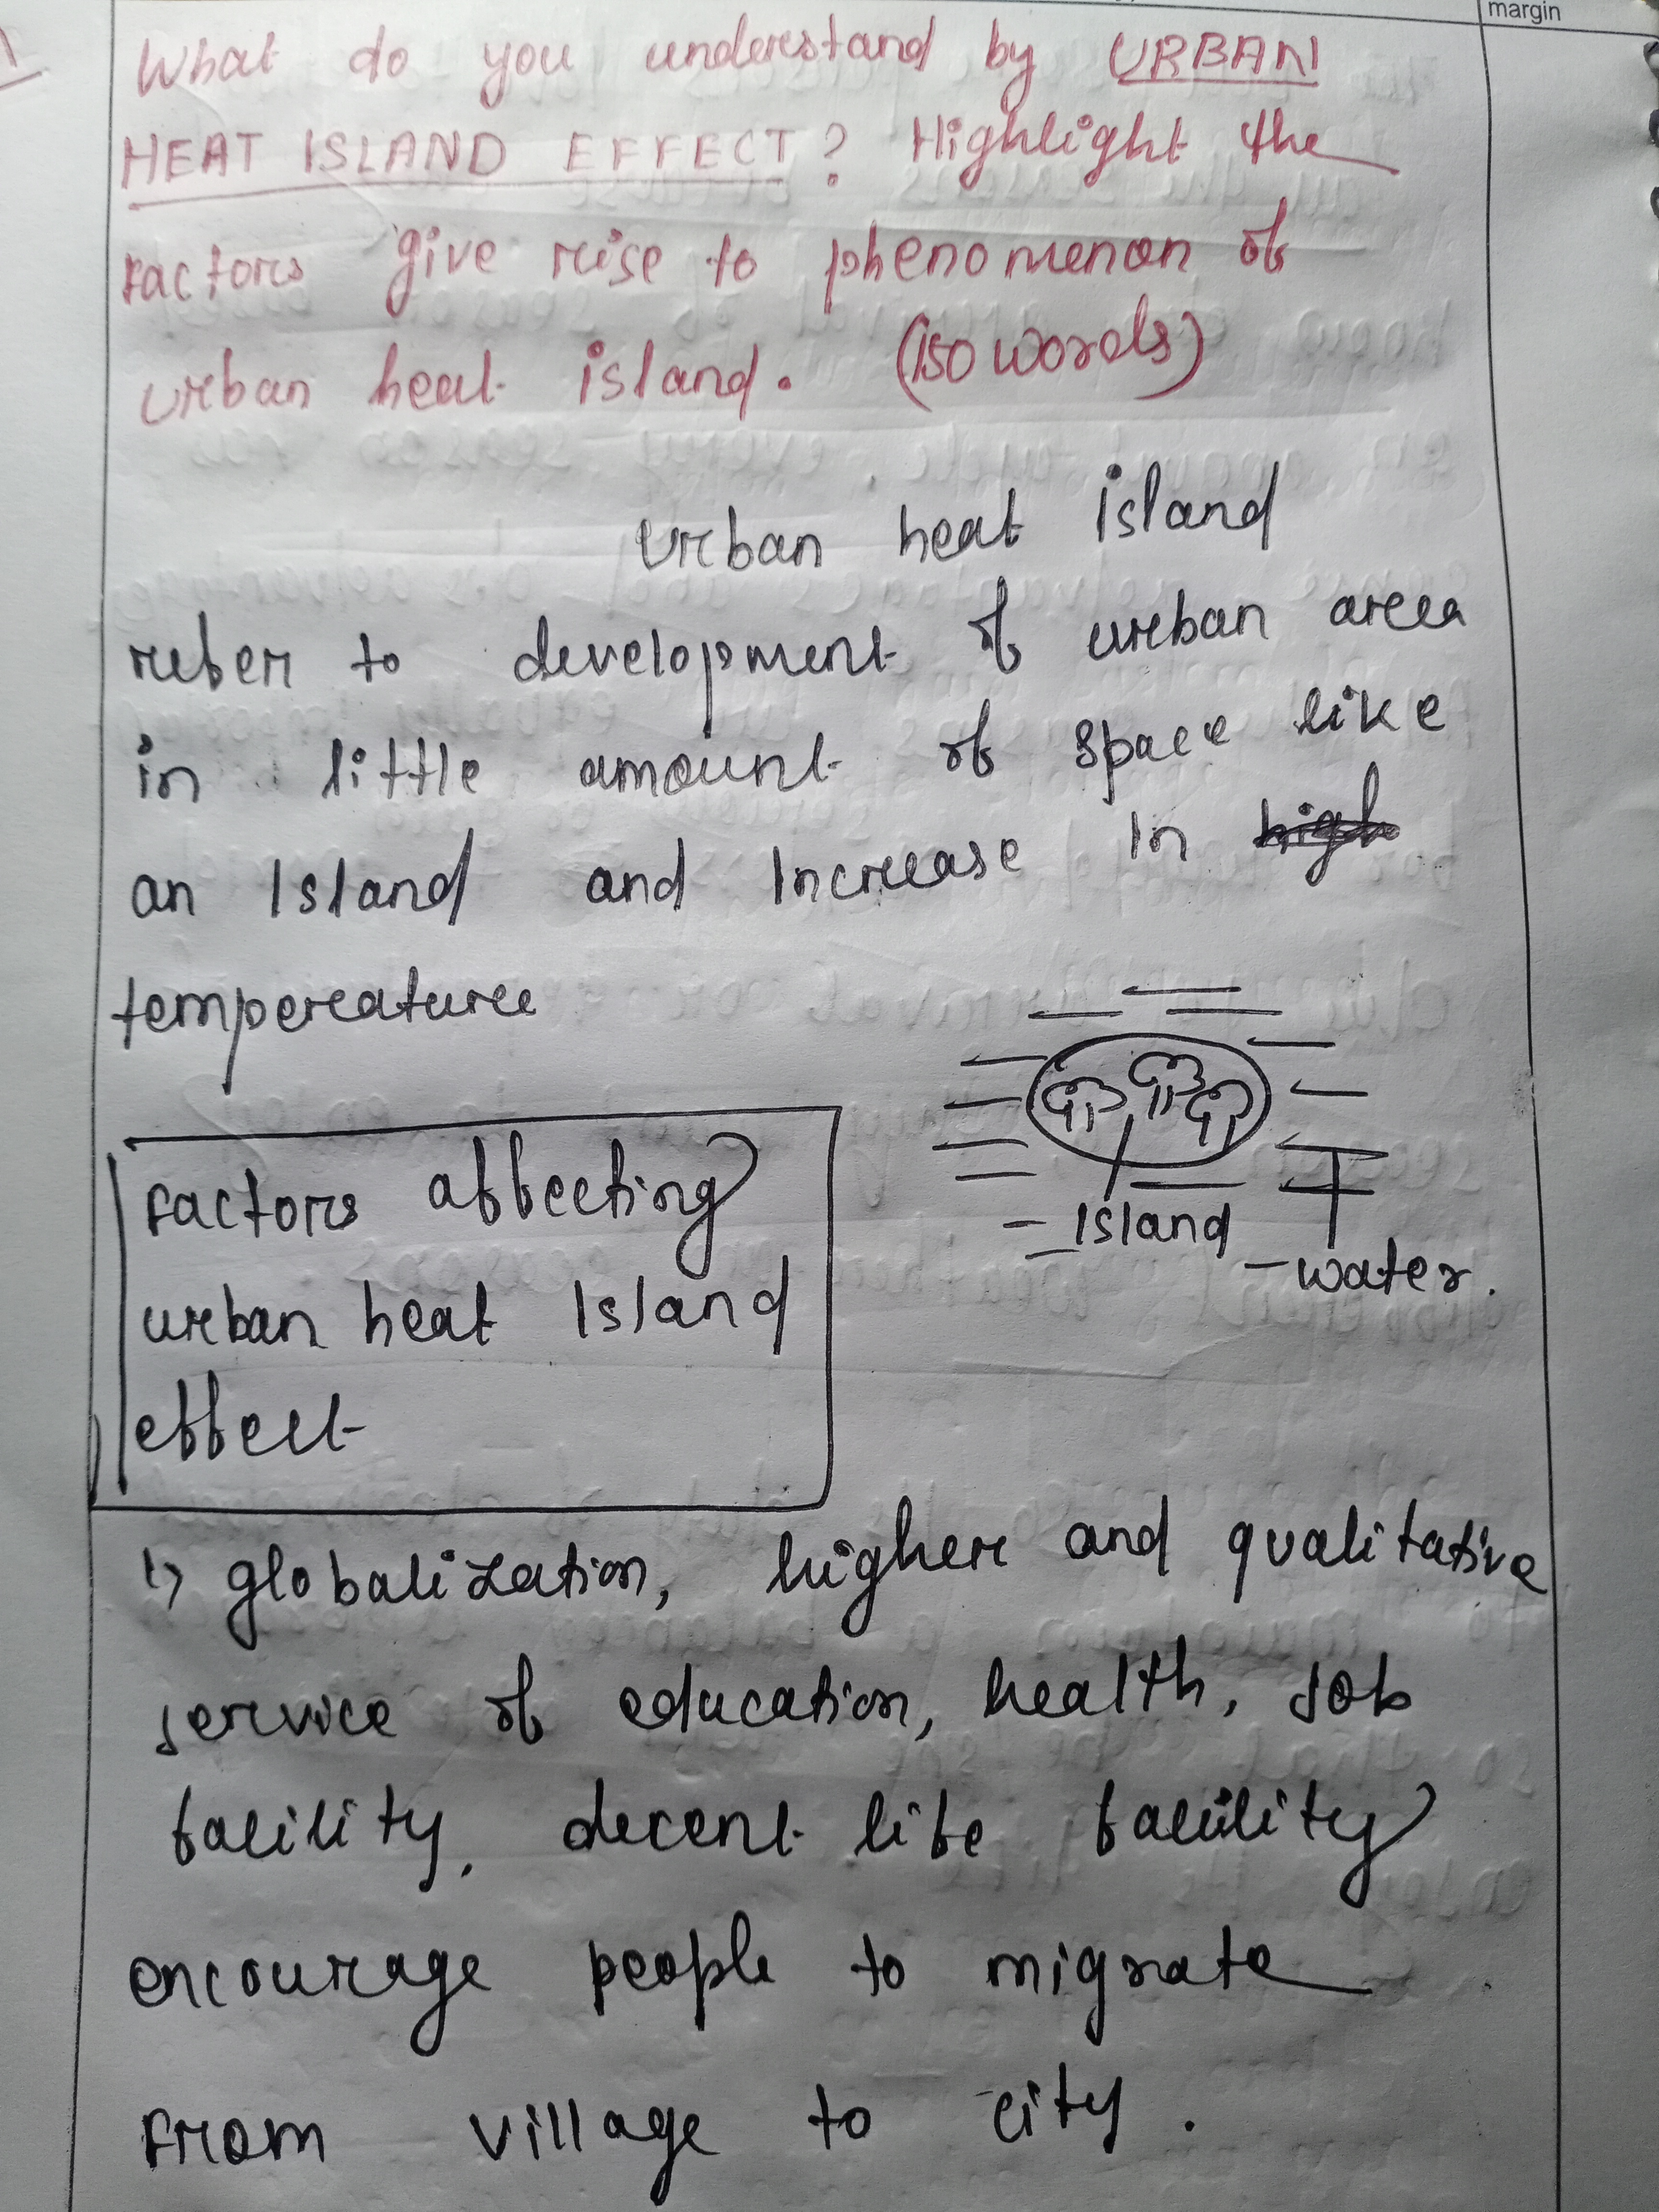 margin
What do you understand by URBAN
HEAT ISLAND EFFECT? Highlight the
factors give rise to phenomenon of
urban heat island. (150 words)
Urban heat island
refer to development of urban area
in little amount of space like
an Island and Increase In high
temperature
Island
water.
Factors affecting
urban heat Island
effect
1) globalization, higher and qualitative
service of education, health, Job
facility, decent life facility
encourage people to migrate
From village to city.